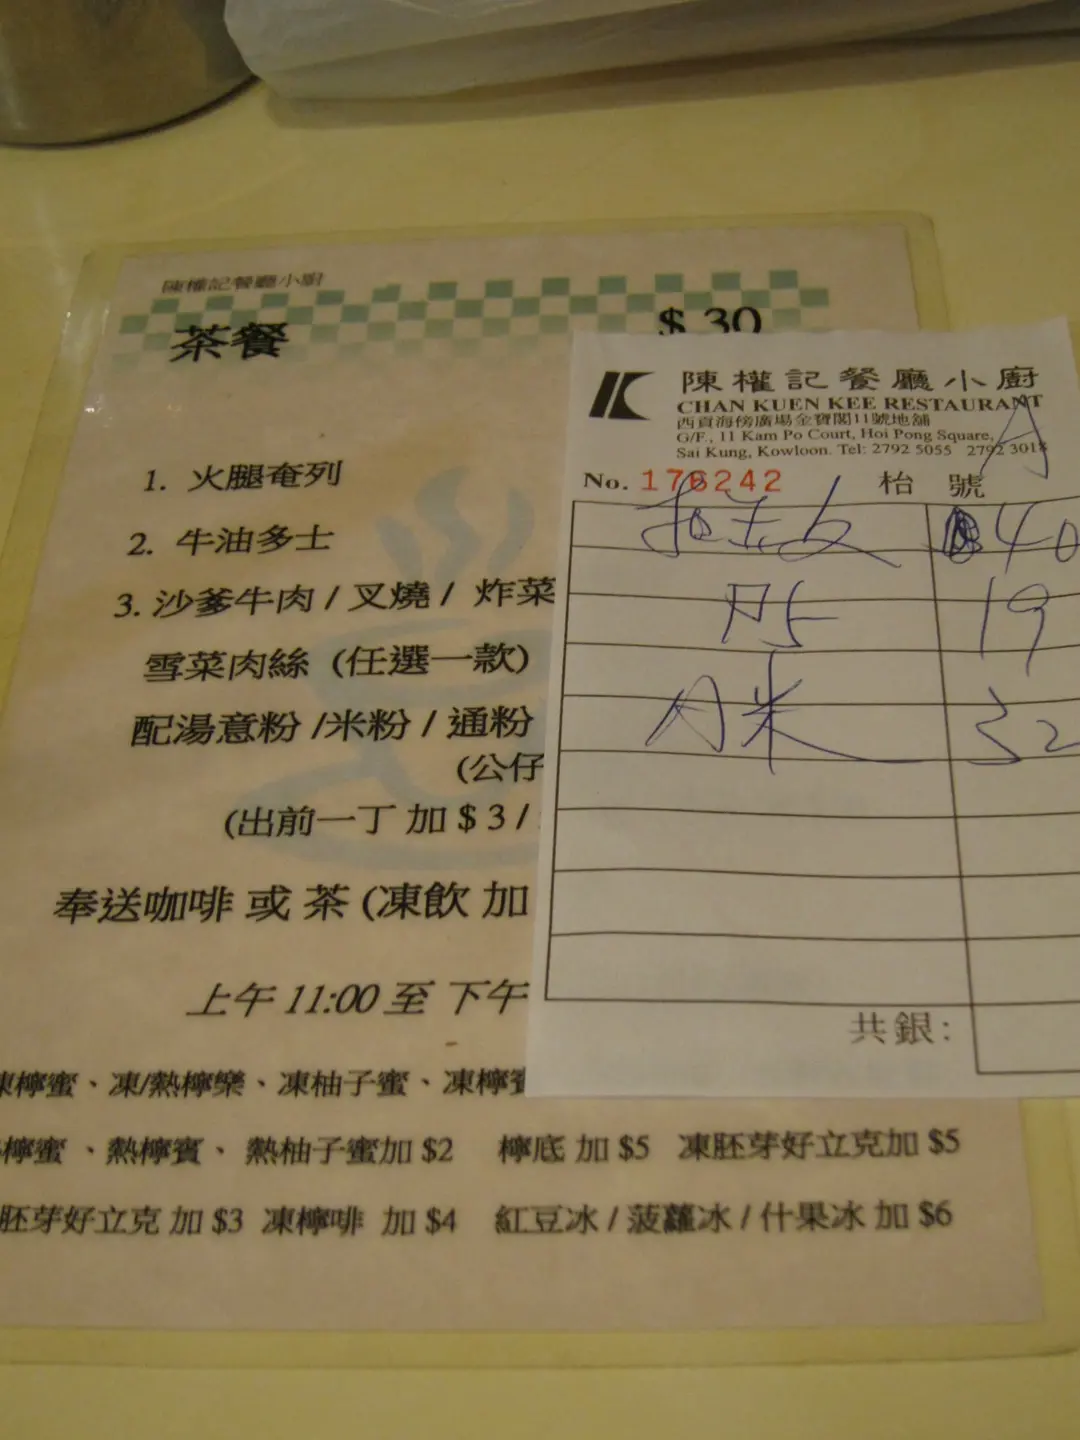 陳權記餐廳小廚
茶餐 $30
1. 火腿奄列
2. 牛油多士
3. 沙爹牛肉 / 叉燒 / 炸菜
雪菜肉絲 (任選一款)
配湯意粉 /米粉 / 通粉
(公仔
(出前一丁 加 $3 /
奉送咖啡 或 茶 (凍飲 加
上午 11:00 至 下午
凍檸蜜、凍/熱檸樂、凍柚子蜜、凍檸賓
檸蜜、熱檸賓、熱柚子蜜加 $2 檸底 加 $5 凍胚芽好立克加 $5
胚芽好立克 加 $3 凍檸啡 加 $4 紅豆冰 / 菠蘿冰 / 什果冰 加 $6
陳權記餐廳小廚
CHAN KUEN KEE RESTAURANT
西貢海傍廣場金寶閣11號地舖
G/F., 11 Kam Po Court, Hoi Pong Square,
Sai Kung, Kowloon. Tel: 2792 5055 2792 3018
No. 176242 枱 號
40
19
米 32
共銀: